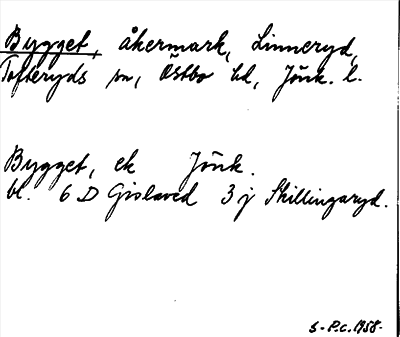 Bygget, åkermark, Linneryd,
Tofteryds sn, Östbo hd, Jönk. l.
Bygget, ek Jönk.
bl. 6 D Gislaved 3 j Skillingaryd.
S - P.C. 1958-